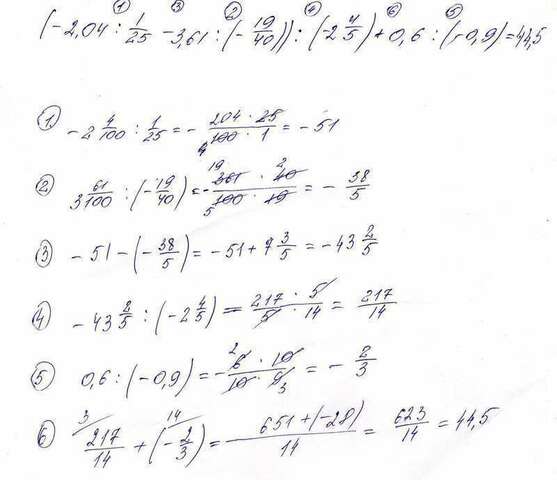 ① ③ ② ④ ⑥ ⑤
(-2,04 : 1/25 - 3,61 : (-19/40)) : (-2 4/5) + 0,6 : (-0,9) = 44,5
① -2 4/100 : 1/25 = - 204·25/100·1 = -51
② 3 61/100 : (-19/40) = - 361·40/100·19 = - 38/5
③ -51 - (-38/5) = -51 + 7 3/5 = -43 2/5
④ -43 2/5 : (-2 4/5) = 217·5/5·14 = 217/14
⑤ 0,6 : (-0,9) = - 6·10/10·9 = - 2/3
⑥ 217/14 + (-2/3) = 651+(-28)/14 = 623/14 = 44,5